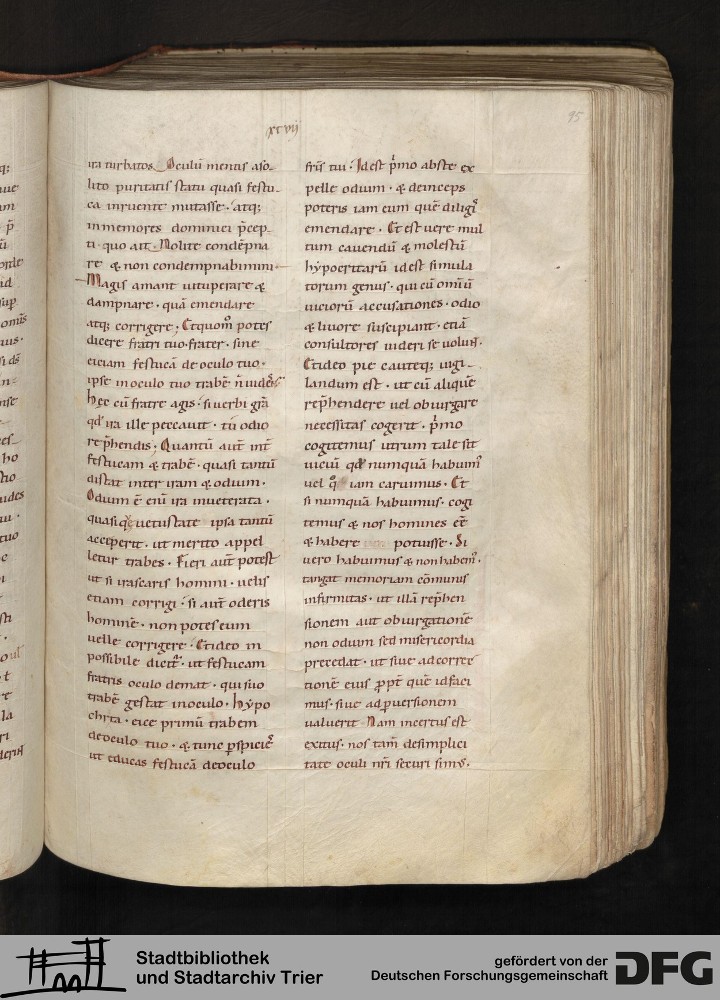 xcvij
95
ira turbatos. Oculū mentis aso-
lito puritatis statu quasi festu-
ca inruente mutasse. atq;
inmemores dominici p̄cep-
ti. quo ait. Nolite condēpna
re & non condempnabimini.
Magis amant uituperare &
dampnare. quā emendare
atq; corrigere; Et quom̊ potes
dicere fratri tuo. frater. sine
eiciam festucā de oculo tuo.
ipse in oculo tuo trabē n̄ uidēs
hec cū fratre agis. si uerbi grā
qd̓ ira ille peccauit. tu odio
rep̄hendis; Quantū aut̄ int̄
festucam & trabē. quasi tantū
distat inter iram & odium.
Odium ē enī ira inueterata.
quasi q uetustate ipsa tantū
acceperit. ut merito appel
letur trabes. Fieri aut̄ potest
ut si irascaris homini. uelis
etiam corrigi. si aut̄ oderis
hominē. non potes eum
uelle corrigere. Et ideo in
possibile dicit᷑. ut festucam
fratris oculo demat. qui suo
trabē gestat in oculo. hypo
chrita. eice primū trabem
de oculo tuo. & tunc ꝑspicies
ut educas festucā de oculo
fr̄is tui. Id est p̄mo abste ex
pelle odium. & deinceps
poteris iam eum quē diligis
emendare. Et est uere mul
tum cauendū & molestū
hypocritarū id est simula
torum genus. qui cū omniū
uiciorū accusationes. odio
& liuore suscipiant. etiā
consultores uideri se uolunt.
Et ideo pie cauteq; uigi-
landum est. ut cū aliquē
rep̄hendere uel obiurgare
necessitas cogerit. p̄mo
cogitemus utrum tale sit
uiciū qd̓ numquā habuim᷒
uel q̊ iam caruimus. Et
si numquā habuimus. cogi
temus & nos homines eē
& habere potuisse. Si
uero habuimus & non habem᷒.
tangat memoriam cōmunis
infirmitas. ut illā rep̄hen
sionem aut obiurgationē
non odium sed misericordia
precedat. ut siue ad corre
tionē eius ꝓpt̄ quē id faci
mus. siue ad ꝑuersionem
ualuerit. Nam incertus est
exitus. nos tam̄ de simplici
tate oculi nr̄i securi sim᷒.
Stadtbibliothek
und Stadtarchiv Trier
gefördert von der
Deutschen Forschungsgemeinschaft
DFG